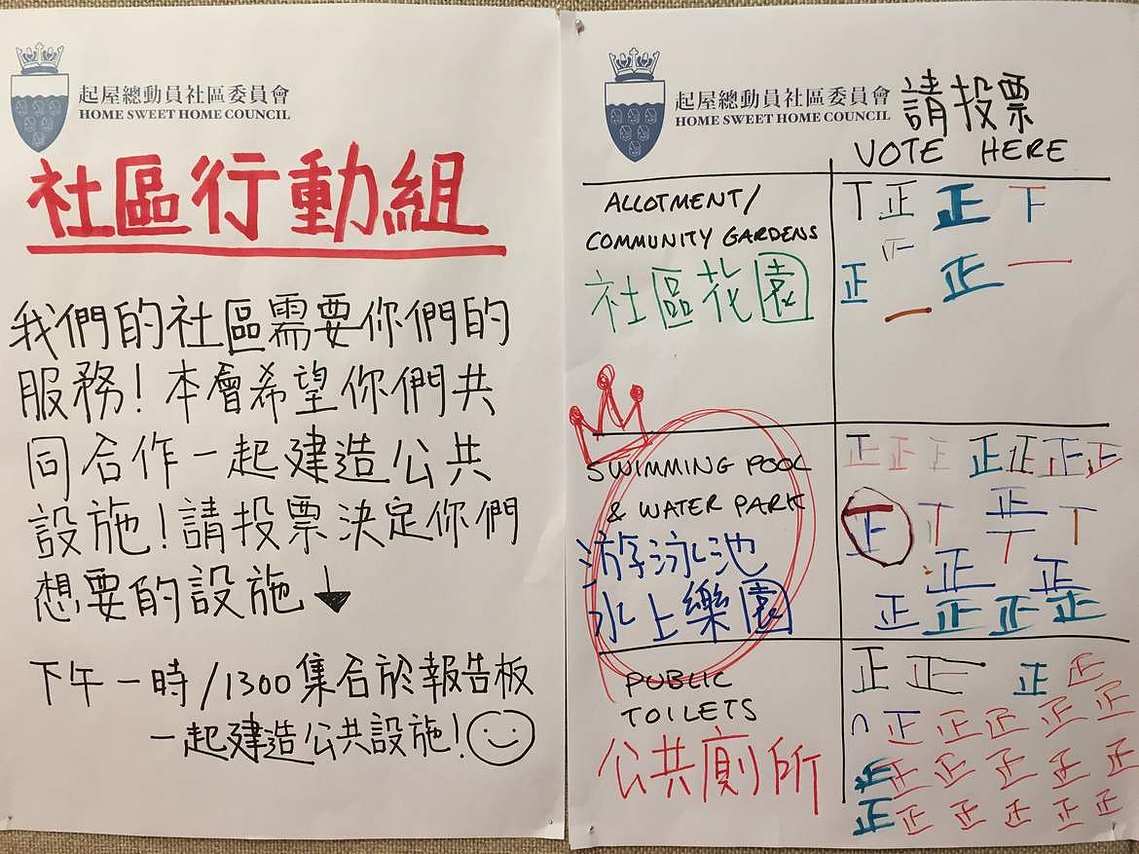 起屋總動員社區委員會
HOME SWEET HOME COUNCIL
社區行動組
我們的社區需要你們的
服務！本會希望你們共
同合作一起建造公共
設施！請投票決定你們
想要的設施↓
下午一時/1300集合於報告板
一起建造公共設施！
起屋總動員社區委員會
HOME SWEET HOME COUNCIL
請投票
VOTE HERE
ALLOTMENT/
COMMUNITY GARDENS
社區花園
丅 正 正 下
正 正 一
正 一
SWIMMING POOL
& WATER PARK
游泳池
水上樂園
正 正 正 正 正 正 正
正 丅 正 丅
丅
正 正
正 正 正 正
PUBLIC
TOILETS
公共廁所
正 正 正 正
正 正 正 正 正
正 正 正 正 正 正
正 正 正 正 正 正